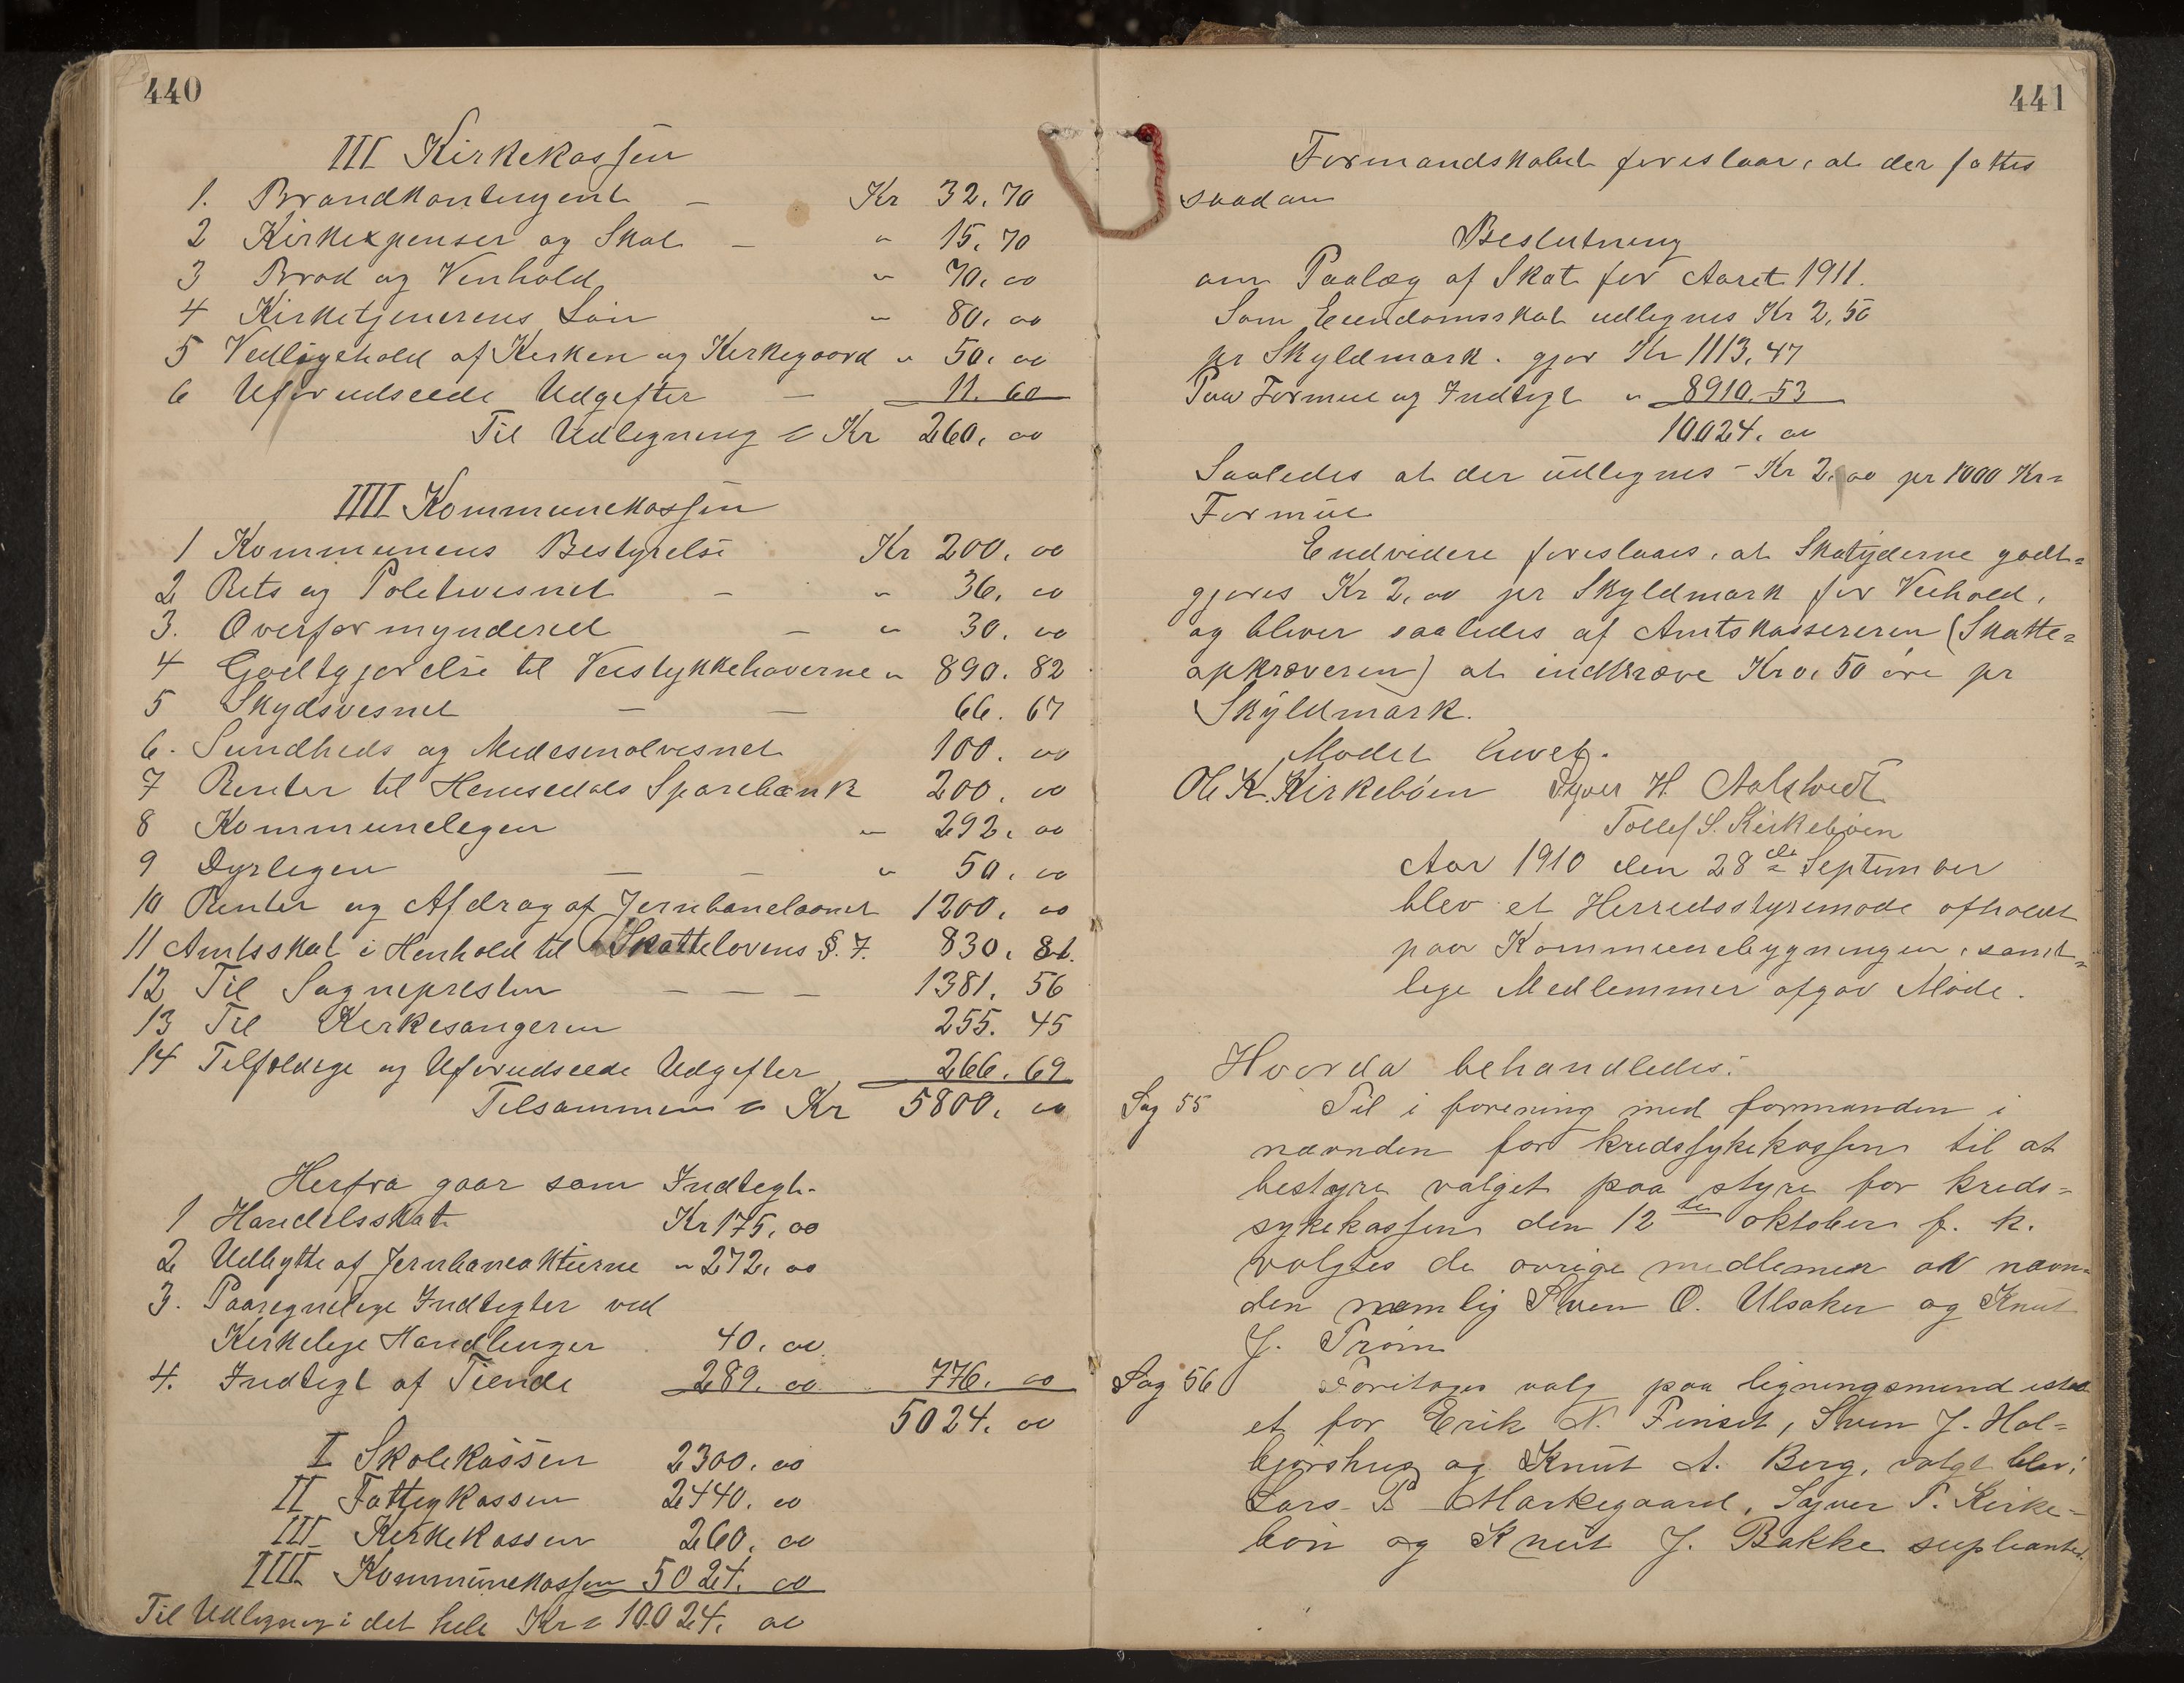 440
III Kirkekassen
1. Brandkontingent — Kr 32.70
2 Kirkexpenser og Skat — " 15.70
3 Brød og Vinhold " 70.00
4 Kirketjenerens Løn " 80.00
5 Vedligehold af Kirken og Kirkegaard " 50.00
6 Uforudseede Udgifter — 11.60
Til Udligning = Kr 260.00
IIII Kommunekassen
1 Kommunens Bestyrelse Kr 200.00
2 Rets og Politivesnet — " 36.00
3. Overformynderiet — " 30.00
4 Godtgjørelse til Veistykkehaverne " 890.82
5 Skydsvesnet — — 66.67
6. Sundheds og Medesinalvesnet 100.00
7 Renter til Hemsedals Sparebank 200.00
8 Kommunelegen " 292.00
9 Dyrlegen — — " 50.00
10 Renter og Afdrag af Jernbanelaanet 1200.00
11 Amtsskat i Henhold til Skattelovens §.7. 830.81.
12 Til Sognepresten — — — 1381.56
13 Til Kirkesangeren 255.45
14 Tilfeldige og Uforudseede Udgifter 266.69
Tilsammen = Kr 5800.00
Herfra gaar som Indtegt.
1 Handelsskat Kr 175.00
2 Udbytte af Jernbaneaktierne " 272.00
3. Paaregnelige Indtegter ved
Kirkelige Handlinger 40.00
4. Indtegt af Tiende 289.00 776.00
5024.00
I Skolekassen 2300.00
II Fattigkassen 2440.00
III Kirkekassen 260.00
IIII Kommunekassen 5024.00
Til Udligning i det hele Kr = 10.024.00
441
Formandskabet foreslaar, at der fattes
saadan
Beslutning
om Paalæg af Skat for Aaret 1911.
Som Eiendomsskat udlignes Kr 2,50
pr Skyldmark. gjør Kr 1113,47
Paa Formue og Indtegt " 8910.53
10024.00
Saaledes at der udlignes - Kr 2.00 pr 1000 Kr=
Formue
Endvidere foreslaaes, at Skatyderne godt=
gjøres Kr 2,00 pr Skyldmark for Veihold,
og bliver saaledes af Amtskassereren (Skatte=
opkræveren) at indkræve Kr 0,50 øre pr
Skyldmark.
Mødet hevet.
Ole K. Kirkebøen Syver H. Aalstvedt
Tollef S. Kirkebøen
Aar 1910 den 28de September
blev et Herredsstyremøde afholdt
paa Kommunebygningen, samt=
lige Medlemmer afgav Møde.
Hvorda behandledes:
Sag 55 Til i forening med formanden i
nævnden for kredssykekassen til at
bestyre valget paa styre for kreds=
sykekassen den 12te oktober f. k.
valgtes de øvrige medlemer av nævn=
den nemlig Sven O. Ulsaker og Knut
J. Trøim
Sag 56 Foretages valg paa ligningsmend isted
et for Erik N. Finset, Sven J. Hol=
bjørshus og Knut A. Berg, valgt blev:
Lars P Markegaard, Syver T. Kirke=
bøn og Knut J. Bakke supleanter